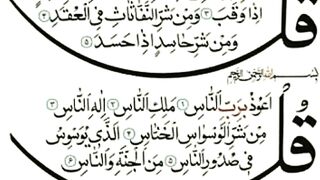 اِذَا وَقَبَ ٣ وَمِنْ شَرِّ النَّفَّاثَاتِ فِي الْعُقَدِ ٤
وَمِنْ شَرِّ حَاسِدٍ اِذَا حَسَدَ ٥
بسم الله الرحمن الرحيم
قُلْ اَعُوذُ بِرَبِّ النَّاسِ ١ مَلِكِ النَّاسِ ٢ اِلٰهِ النَّاسِ ٣
مِنْ شَرِّ الْوَسْوَاسِ الْخَنَّاسِ ٤ اَلَّذِي يُوَسْوِسُ
فِي صُدُورِ النَّاسِ ٥ مِنَ الْجِنَّةِ وَالنَّاسِ ٦